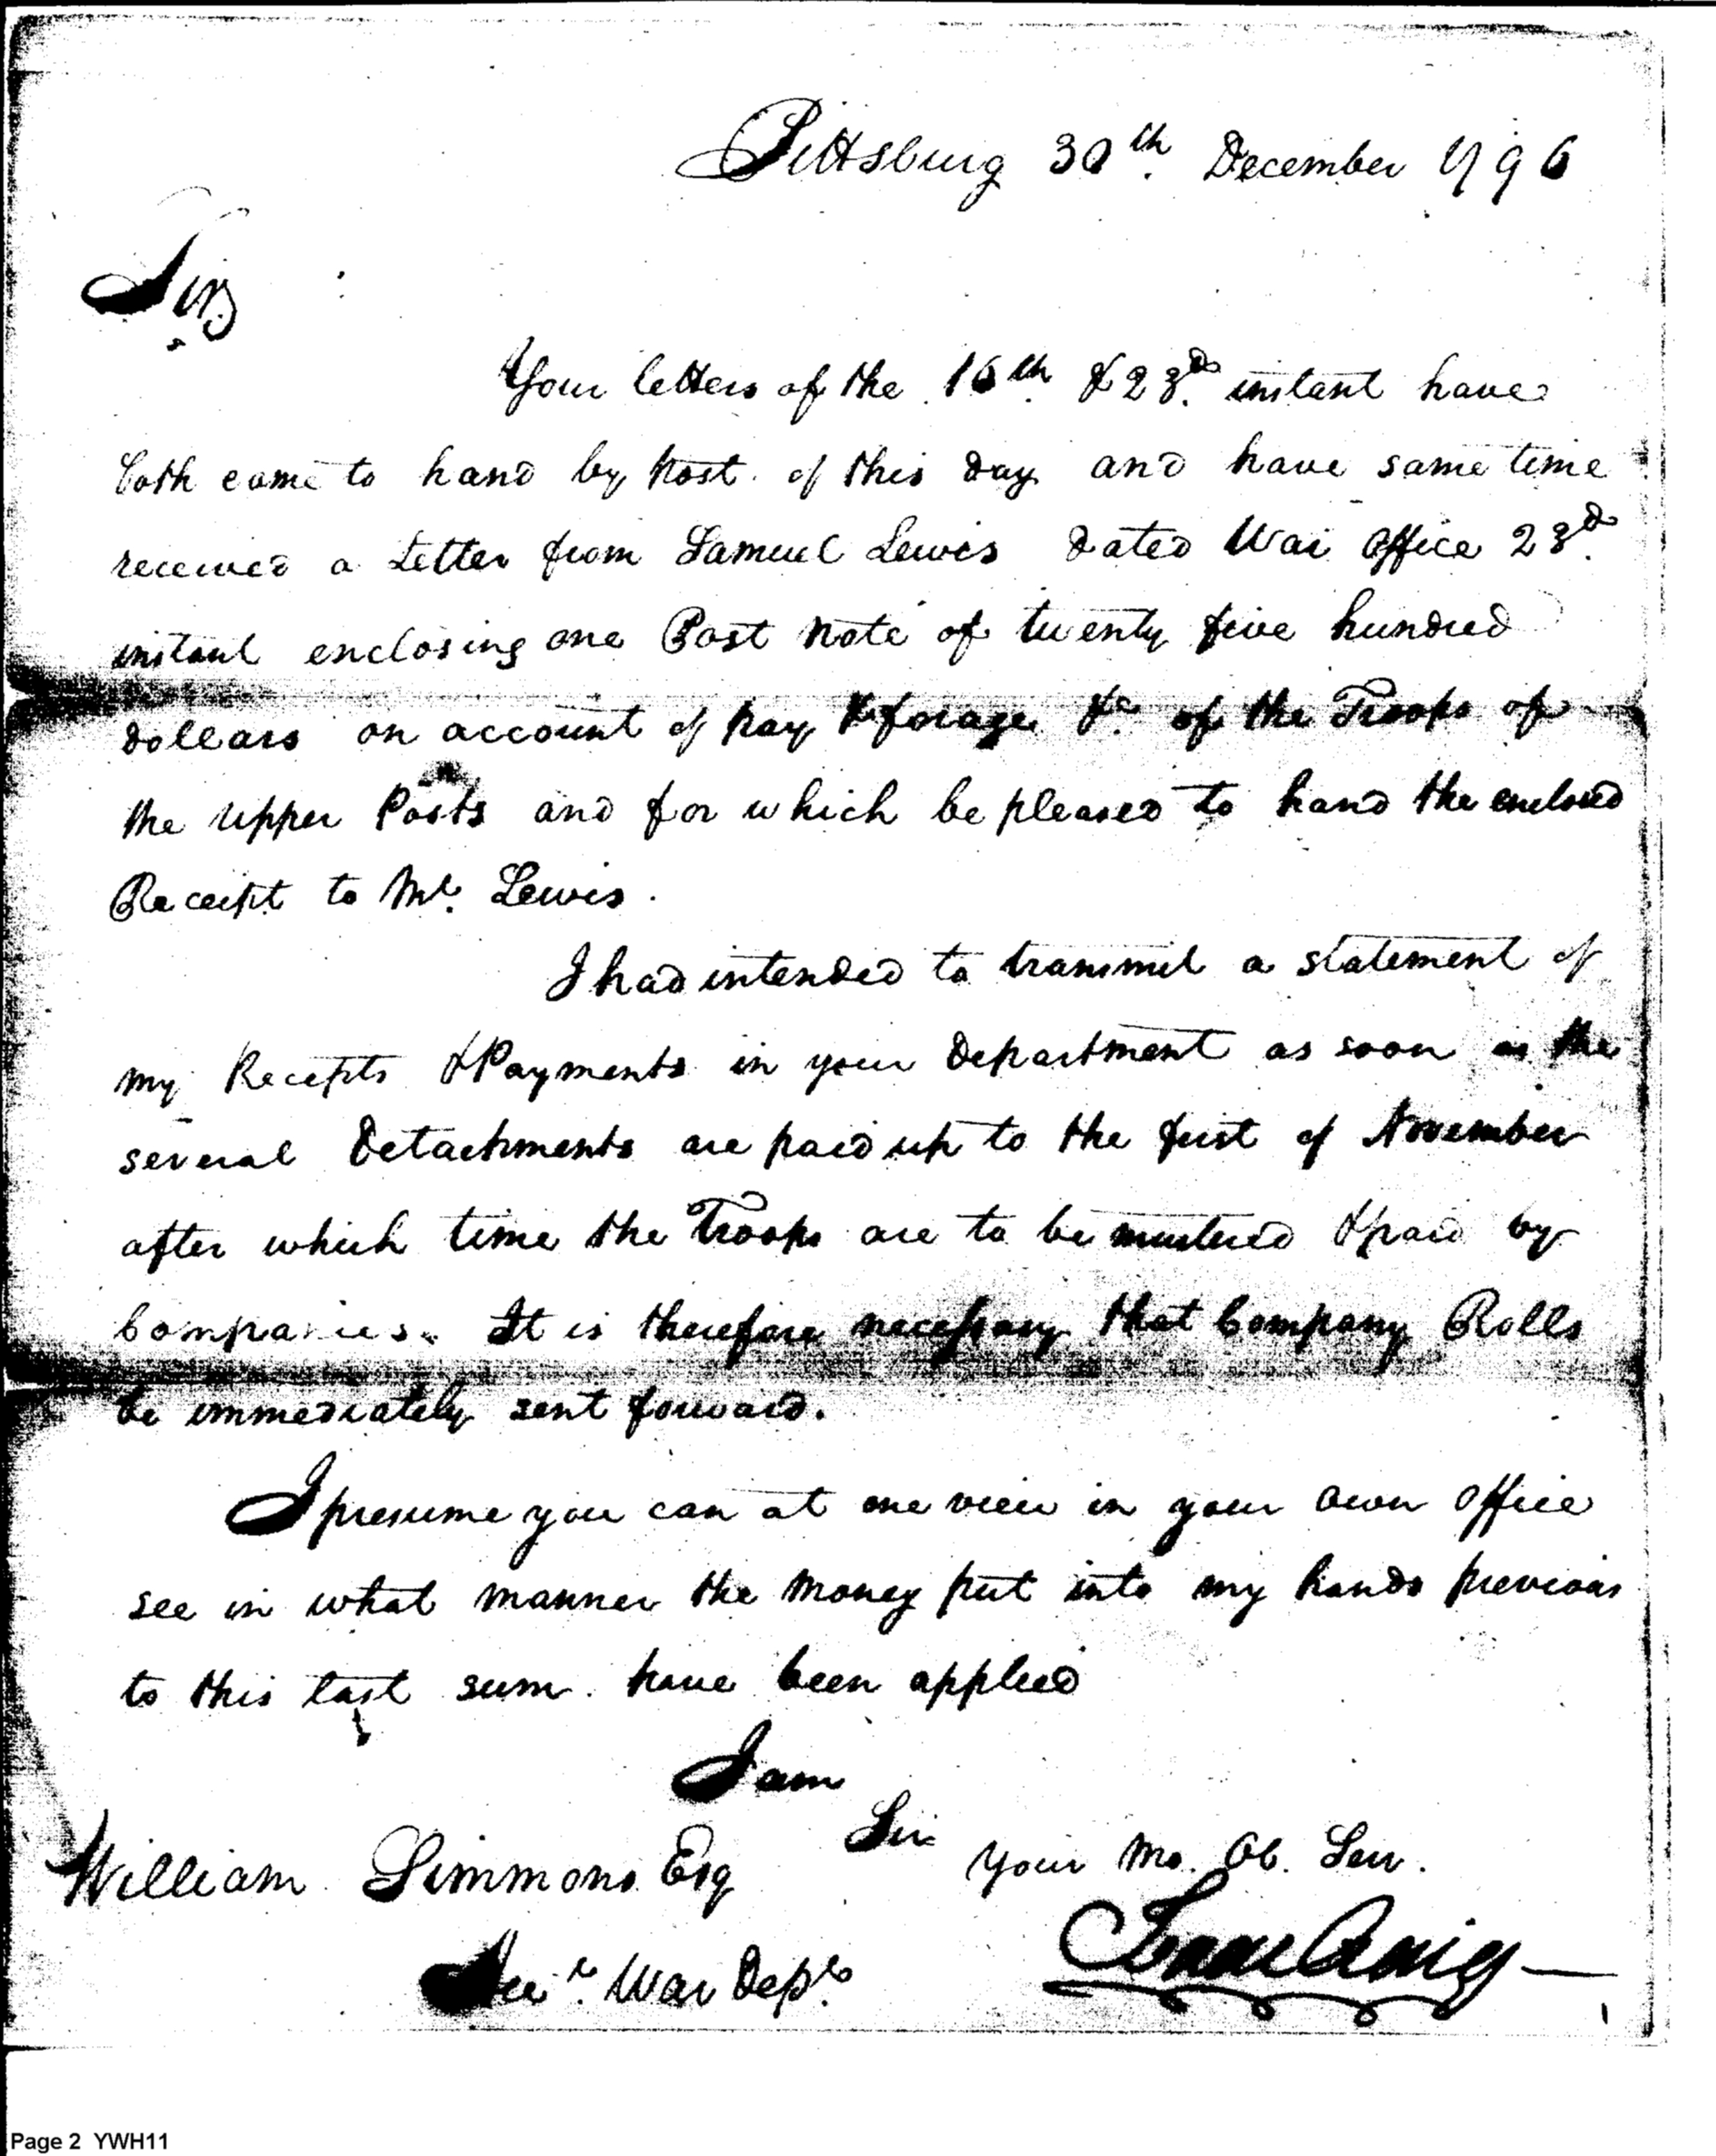 Pittsburg 30th. December 1796
Sir,
Your letters of the 16th. & 23d. instant have
both came to hand by post. of this day and have same time
received a Letter from Samuel Lewis dated War Office 23d.
instant enclosing one Post Note of twenty five hundred
dollars on account of pay & forage &c. of the Troops of
the upper Posts and for which be pleased to hand the enclosed
Receipt to Mr. Lewis.
I had intended to transmit a statement of
my Receipts & Payments in your Department as soon as the
several Detachments are paid up to the first of November
after which time the Troops are to be mustered & paid by
Companies. It is therefore necessary that Company Rolls
be immediately sent forward.
I presume you can at one view in your own office
see in what manner the money put into my hands previous
to this last sum. have been applied
I am
Sir
your Mo. Ob. Serv.
William Simmons Esq
War Dept.
Isaac Craig
Page 2 YWH11